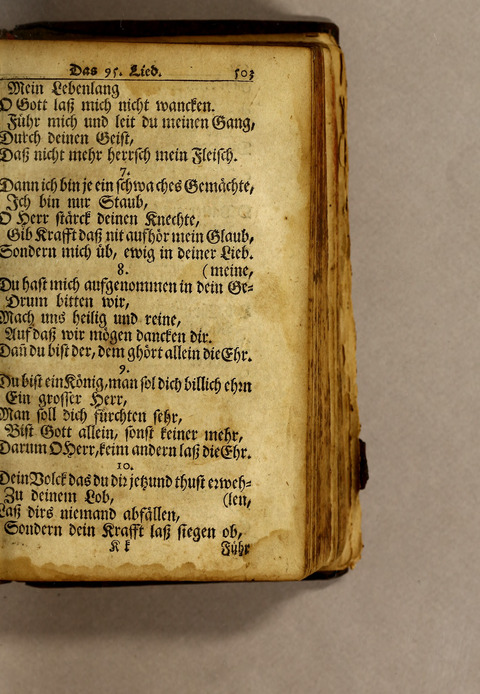 Das 95. Lied. 503
Mein Lebenlang
O Gott laß mich nicht wancken.
Führ mich und leit du meinen Gang,
Durch deinen Geist,
Daß nicht mehr herrsch mein Fleisch.
7.
Dann ich bin je ein schwaches Gemächte,
Ich bin nur Staub,
O Herr stärck deinen Knechte,
Gib Krafft daß nit aufhör mein Glaub,
Sondern mich üb, ewig in deiner Lieb.
8. (meine,
Du hast mich aufgenommen in dein Ge-
Drum bitten wir,
Mach uns heilig und reine,
Auf daß wir mögen dancken dir.
Dañ du bist der, dem ghört allein die Ehr.
9.
Du bist ein König, man sol dich billich ehrn
Ein grosser Herr,
Man soll dich fürchten sehr,
Bist Gott allein, sonst keiner mehr,
Darum O Herr, keim andern laß die Ehr.
10.
Dein Volck das du dir jetzund thust erweh-
Zu deinem Lob, (len,
Laß dirs niemand abfällen,
Sondern dein Krafft laß siegen ob,
K k Führ